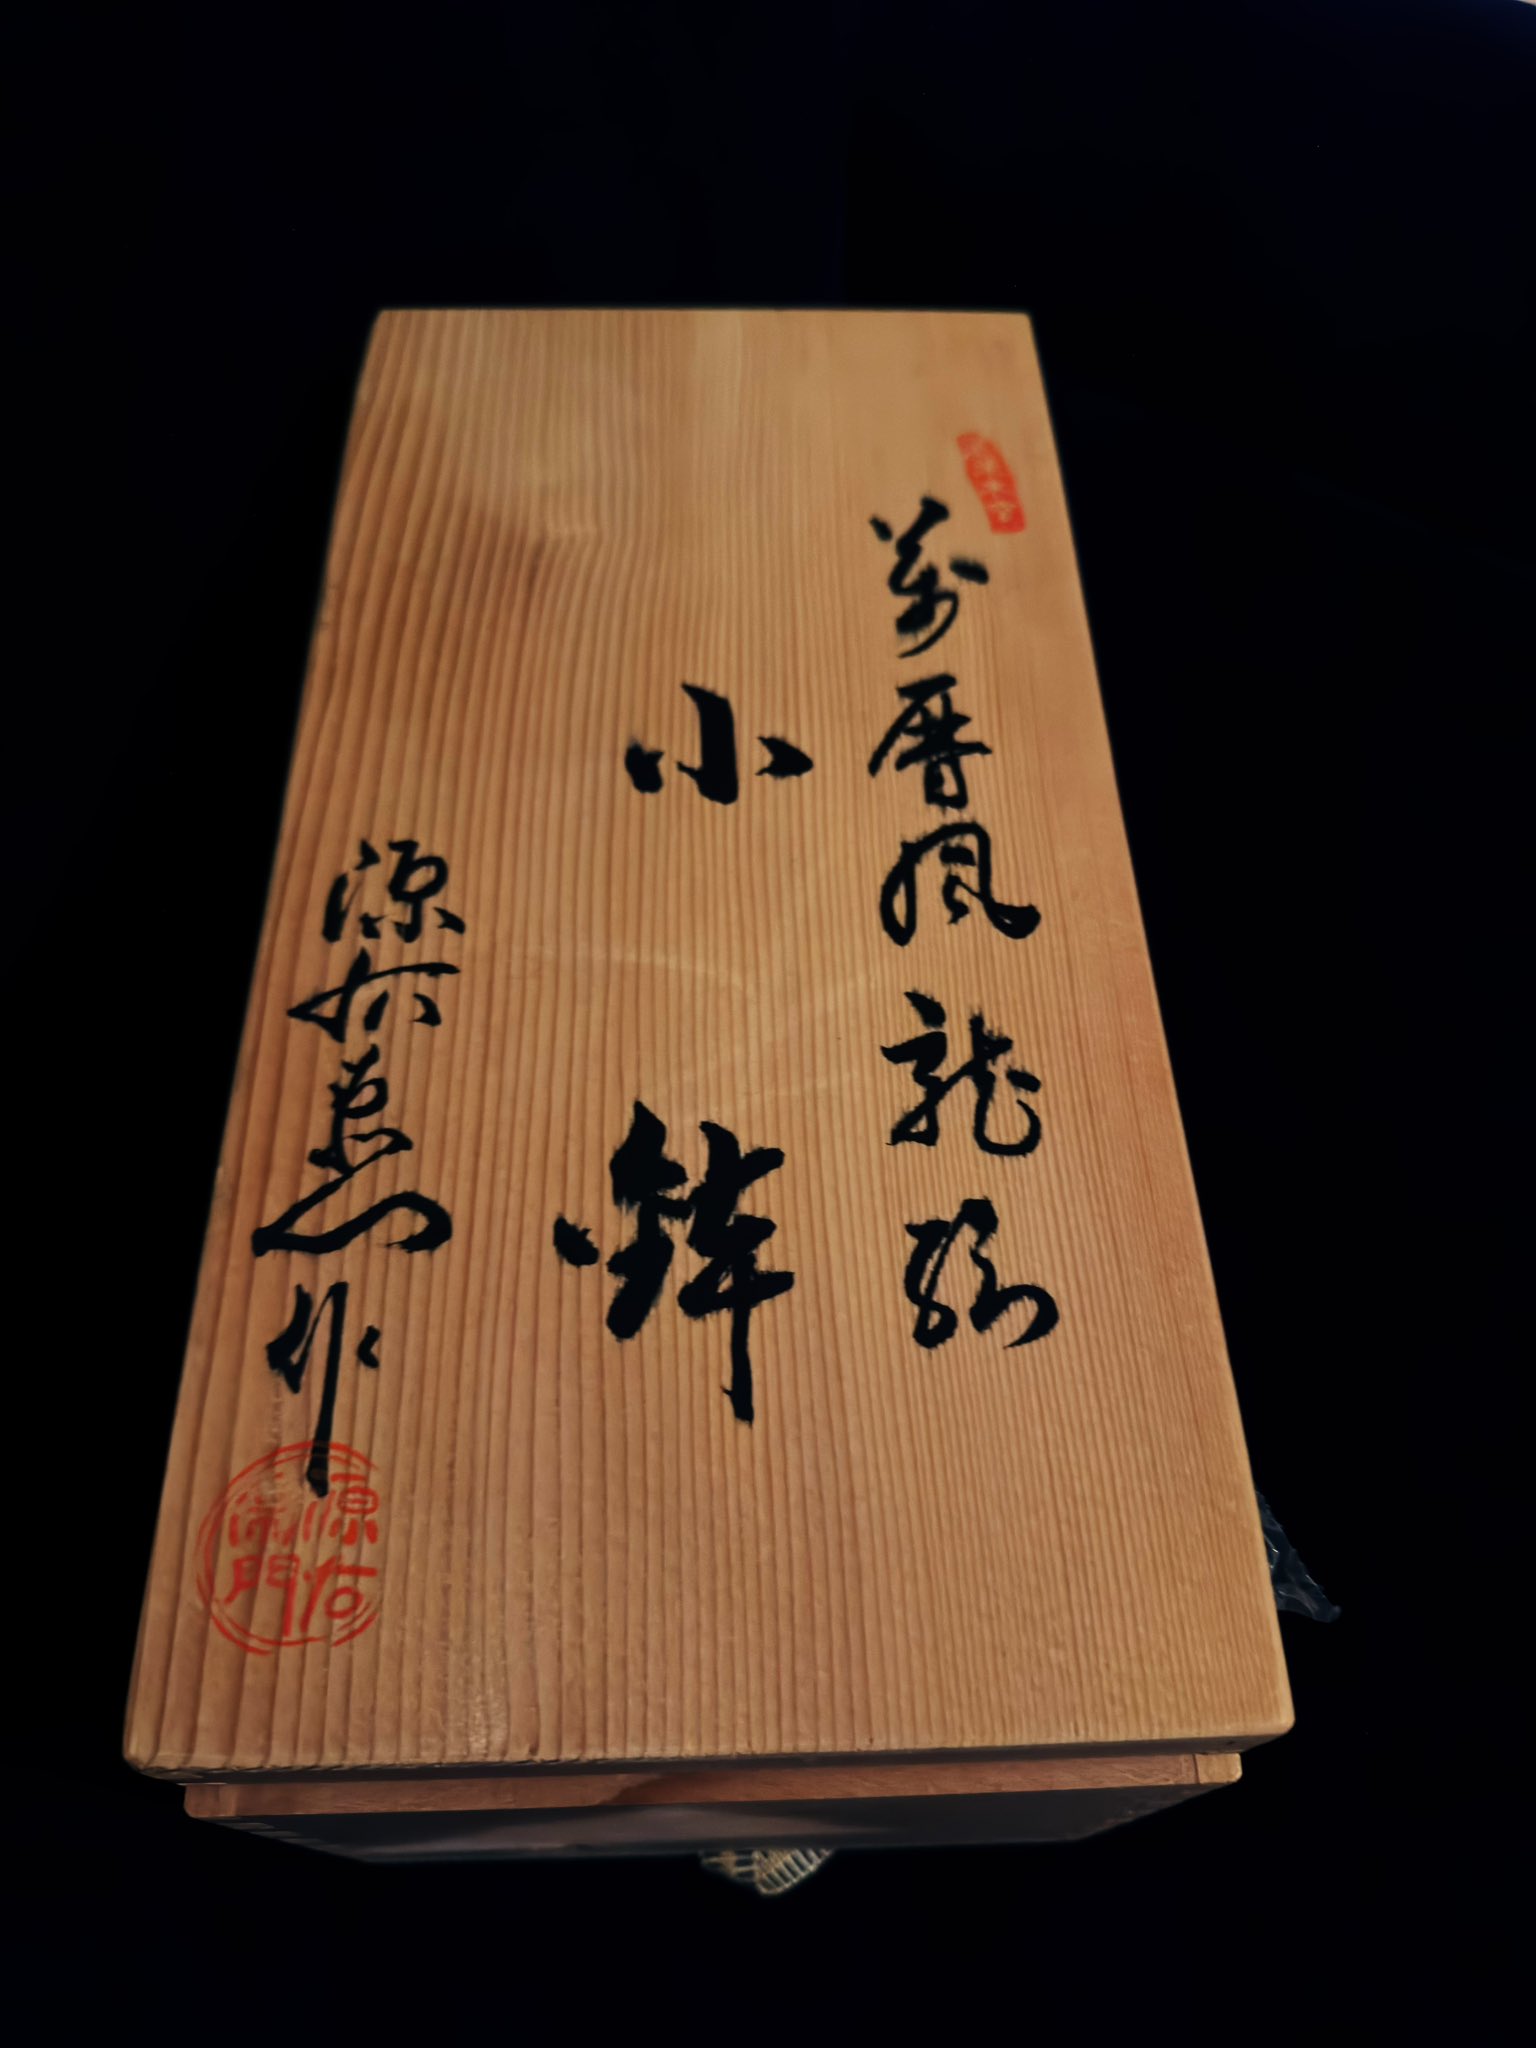 萬暦風龍
小鉢
源右衛門作
源右
衛門